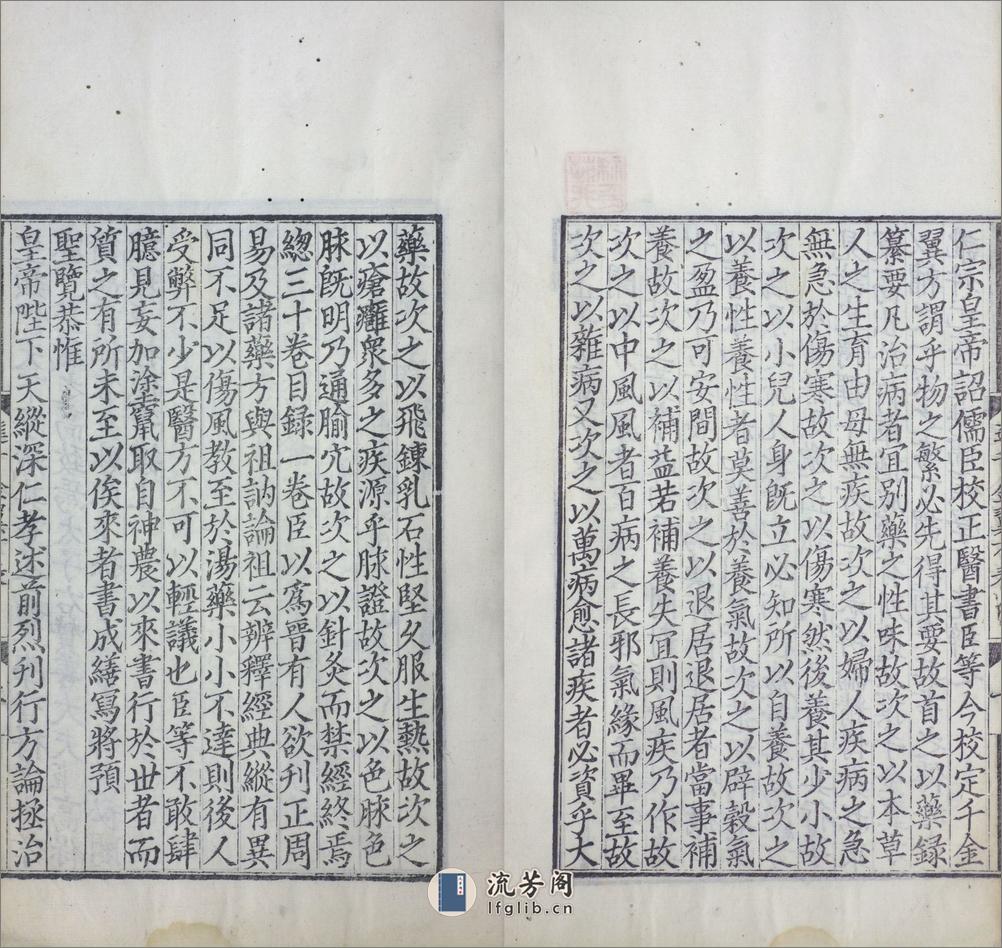 仁宗皇帝詔儒臣校正醫書臣等今校定千金
翼方謂乎物之繁必先得其要故首之以藥録
纂要凡治病者宜别藥之性味故次之以本草
人之生育由母無疾故次之以婦人疾病之急
無急於傷寒故次之以傷寒然後養其少小故
次之以小兒人身既立必知所以自養故次之
以養性養性者莫善於養氣故次之以辟穀氣
之盈乃可安閒故次之以退居退居者當事補
養故次之以補益若補養失宜則風疾乃作故
次之以中風風者百病之長邪氣緣而畢至故
次之以雜病又次之以萬病愈諸疾者必資乎大
藥故次之以飛鍊乳石性堅久服生熱故次之
以瘡癰衆多之疾源乎脉證故次之以色脉色
脉既明乃通腧穴故次之以針灸而禁經終焉
總三十卷目録一卷臣以爲晉有人欲刊正周
易及諸藥方與祖訥論祖云辨釋經典縱有異
同不足以傷風教至於湯藥小小不達則後人
受弊不少是醫方不可以輕議也臣等不敢肆
臆見妄加塗竄取自神農以來書行於世者而
質之有所未至以俟來者書成繕寫將預
聖覽恭惟
皇帝陛下天縱深仁孝述前烈刊行方論拯治
流芳阁
lfglib.cn